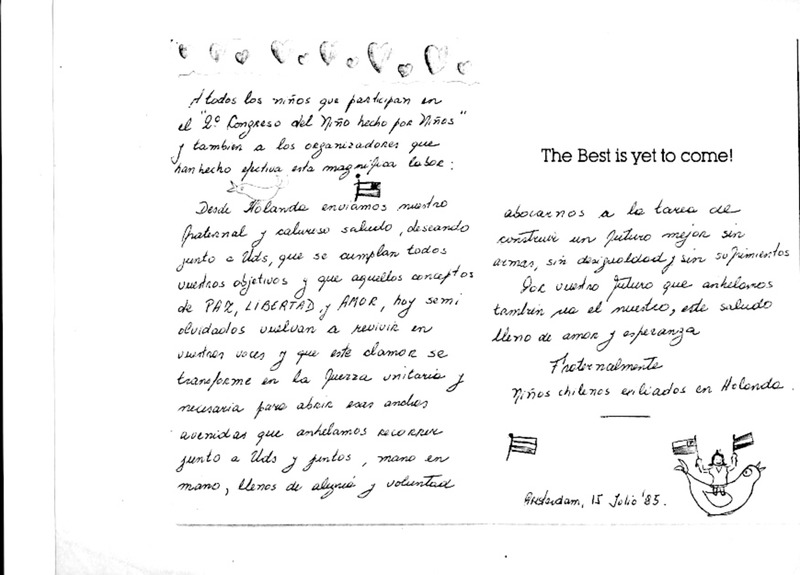 A todos los niños que participan en
el "2º Congreso del Niño hecho por Niños"
y tambien a los organizadores que
han hecho efectiva esta magnífica labor:
Desde Holanda enviamos nuestro
fraternal y caluroso saludo, deseando
junto a Uds, que se cumplan todos
vuestros objetivos y que aquellos conceptos
de PAZ, LIBERTAD, y AMOR, hoy semi
olvidados vuelvan a revivir en
vuestras voces y que este clamor se
transforme en la fuerza unitaria y
necesaria para abrir esas anchas
avenidas que anhelamos recorrer
junto a Uds y juntos, mano en
mano, llenos de alegría y voluntad
The Best is yet to come!
abocarnos a la tarea de
construir un futuro mejor sin
armas, sin desigualdad y sin sufrimientos
Por vuestro futuro que anhelamos
tambien sea el nuestro, este saludo
lleno de amor y esperanza
Fraternalmente
Niños chilenos exiliados en Holanda.
Amsterdam, 15 Julio '85.